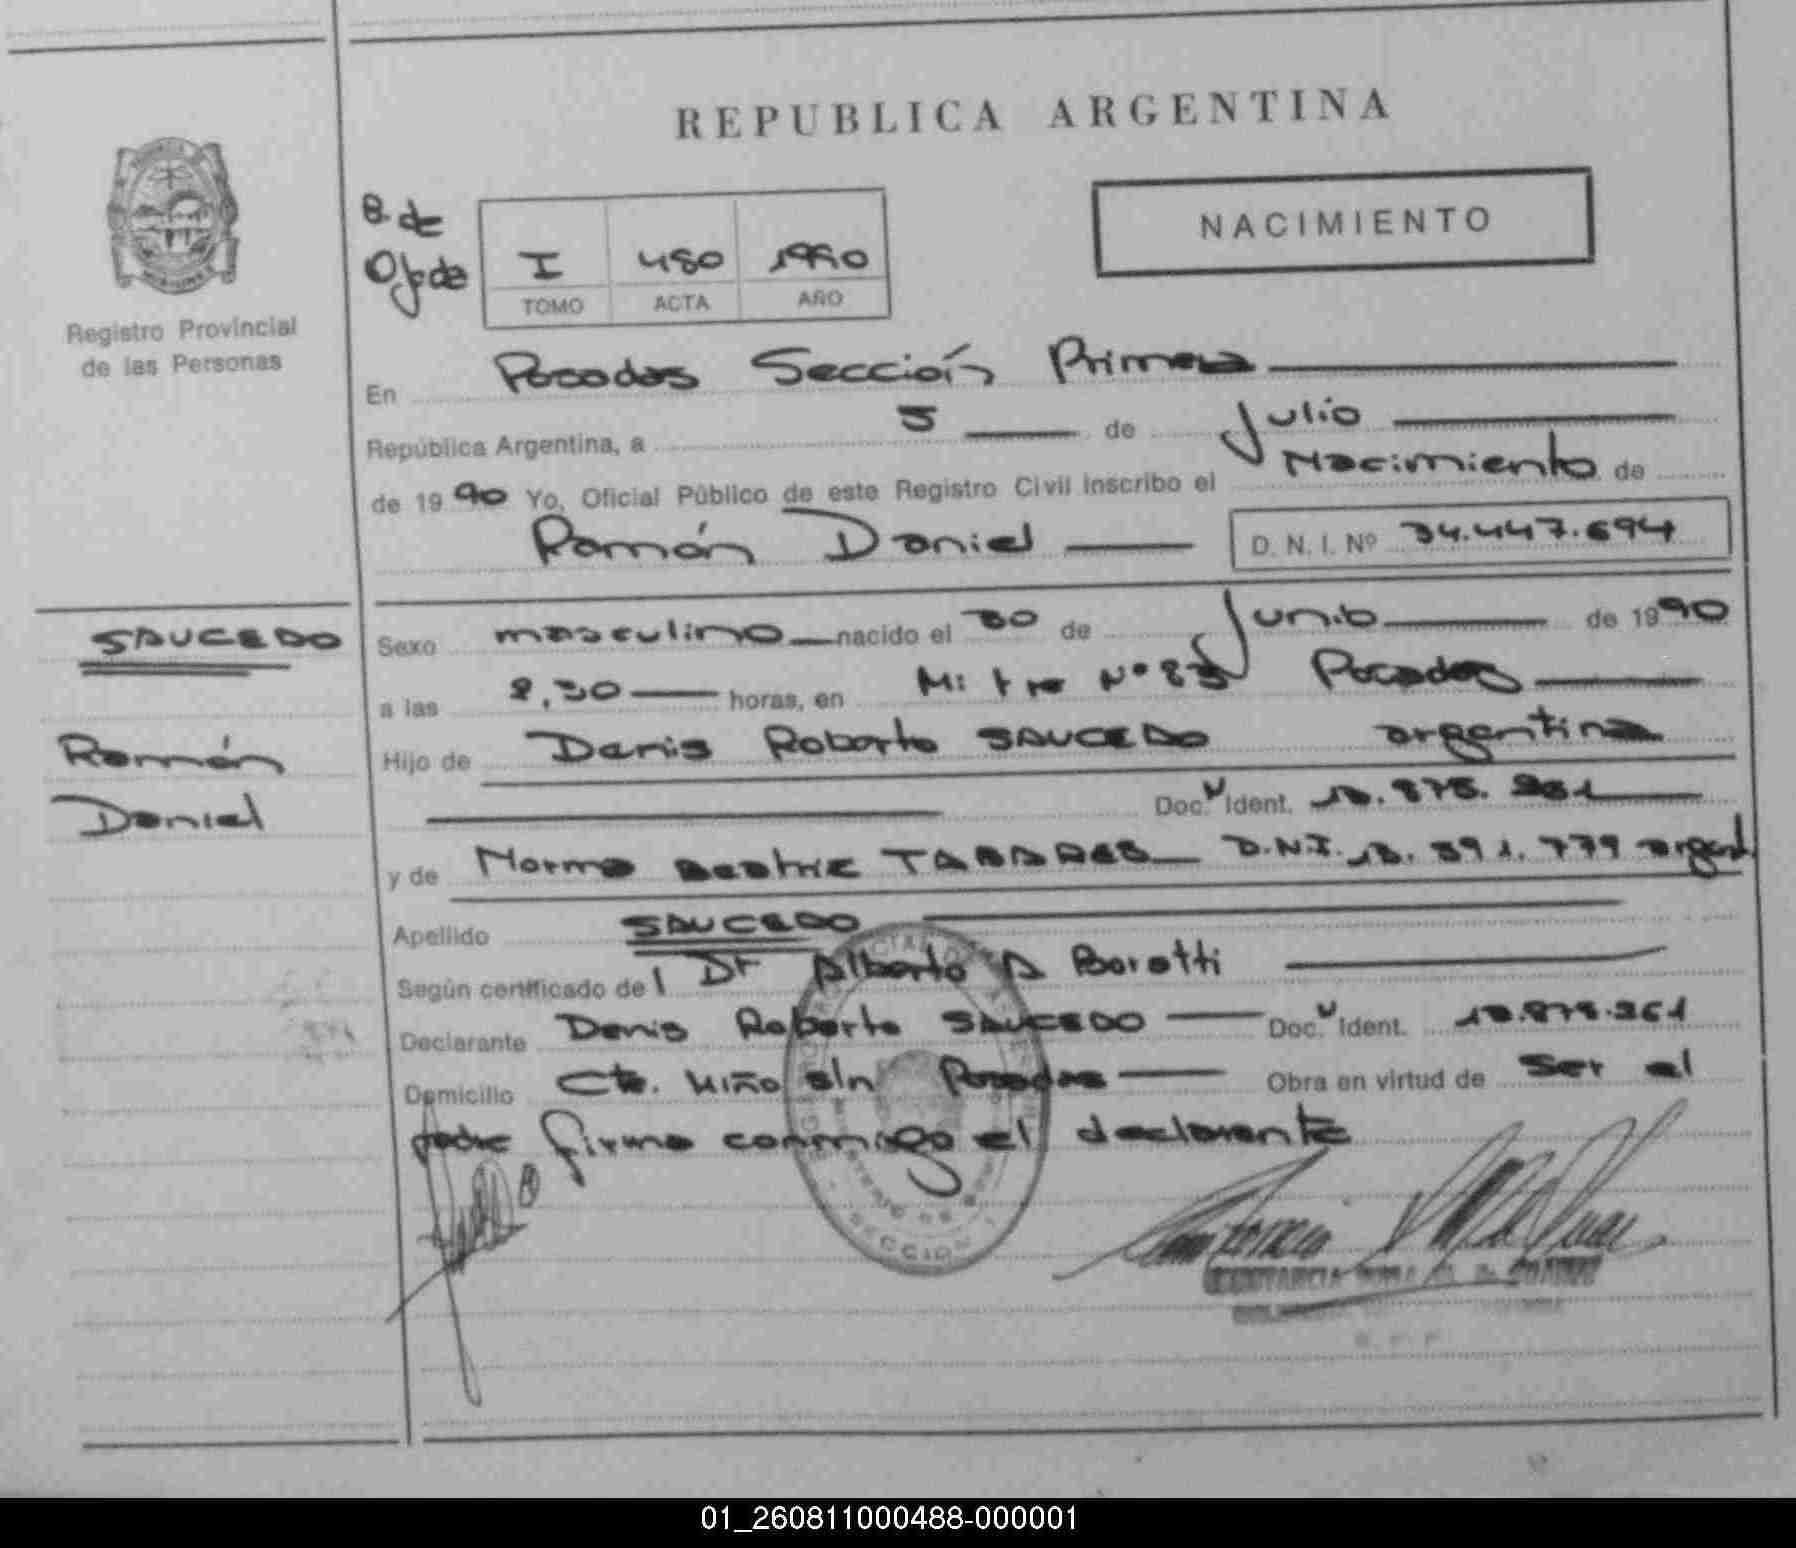 REPUBLICA ARGENTINA
NACIMIENTO
B. de
Ojo de
I 480 1990
TOMO ACTA AÑO
Registro Provincial
de las Personas
En Posadas Sección Primera
República Argentina, a 5 de Julio
de 1990 Yo, Oficial Público de este Registro Civil inscribo el Nacimiento de
Ramón Daniel D. N. I. Nº 34.447.694
SAUCEDO
Ramón
Daniel
Sexo masculino nacido el 30 de Junio de 1990
a las 8,30 horas, en Mitre Nº 83 Posadas
Hijo de Denis Roberto SAUCEDO argentina
Doc. Ident.
y de Norma Beatriz TABARES D.N.I. 13.391.779 argent.
Apellido SAUCEDO
Según certificado del Dr Alberto A Borotti
Declarante Denis Roberto SAUCEDO Doc. Ident.
Domicilio Cte. Miño s/n Posadas Obra en virtud de ser el
padre firma conmigo el declarante
SECCION
01_260811000488-000001